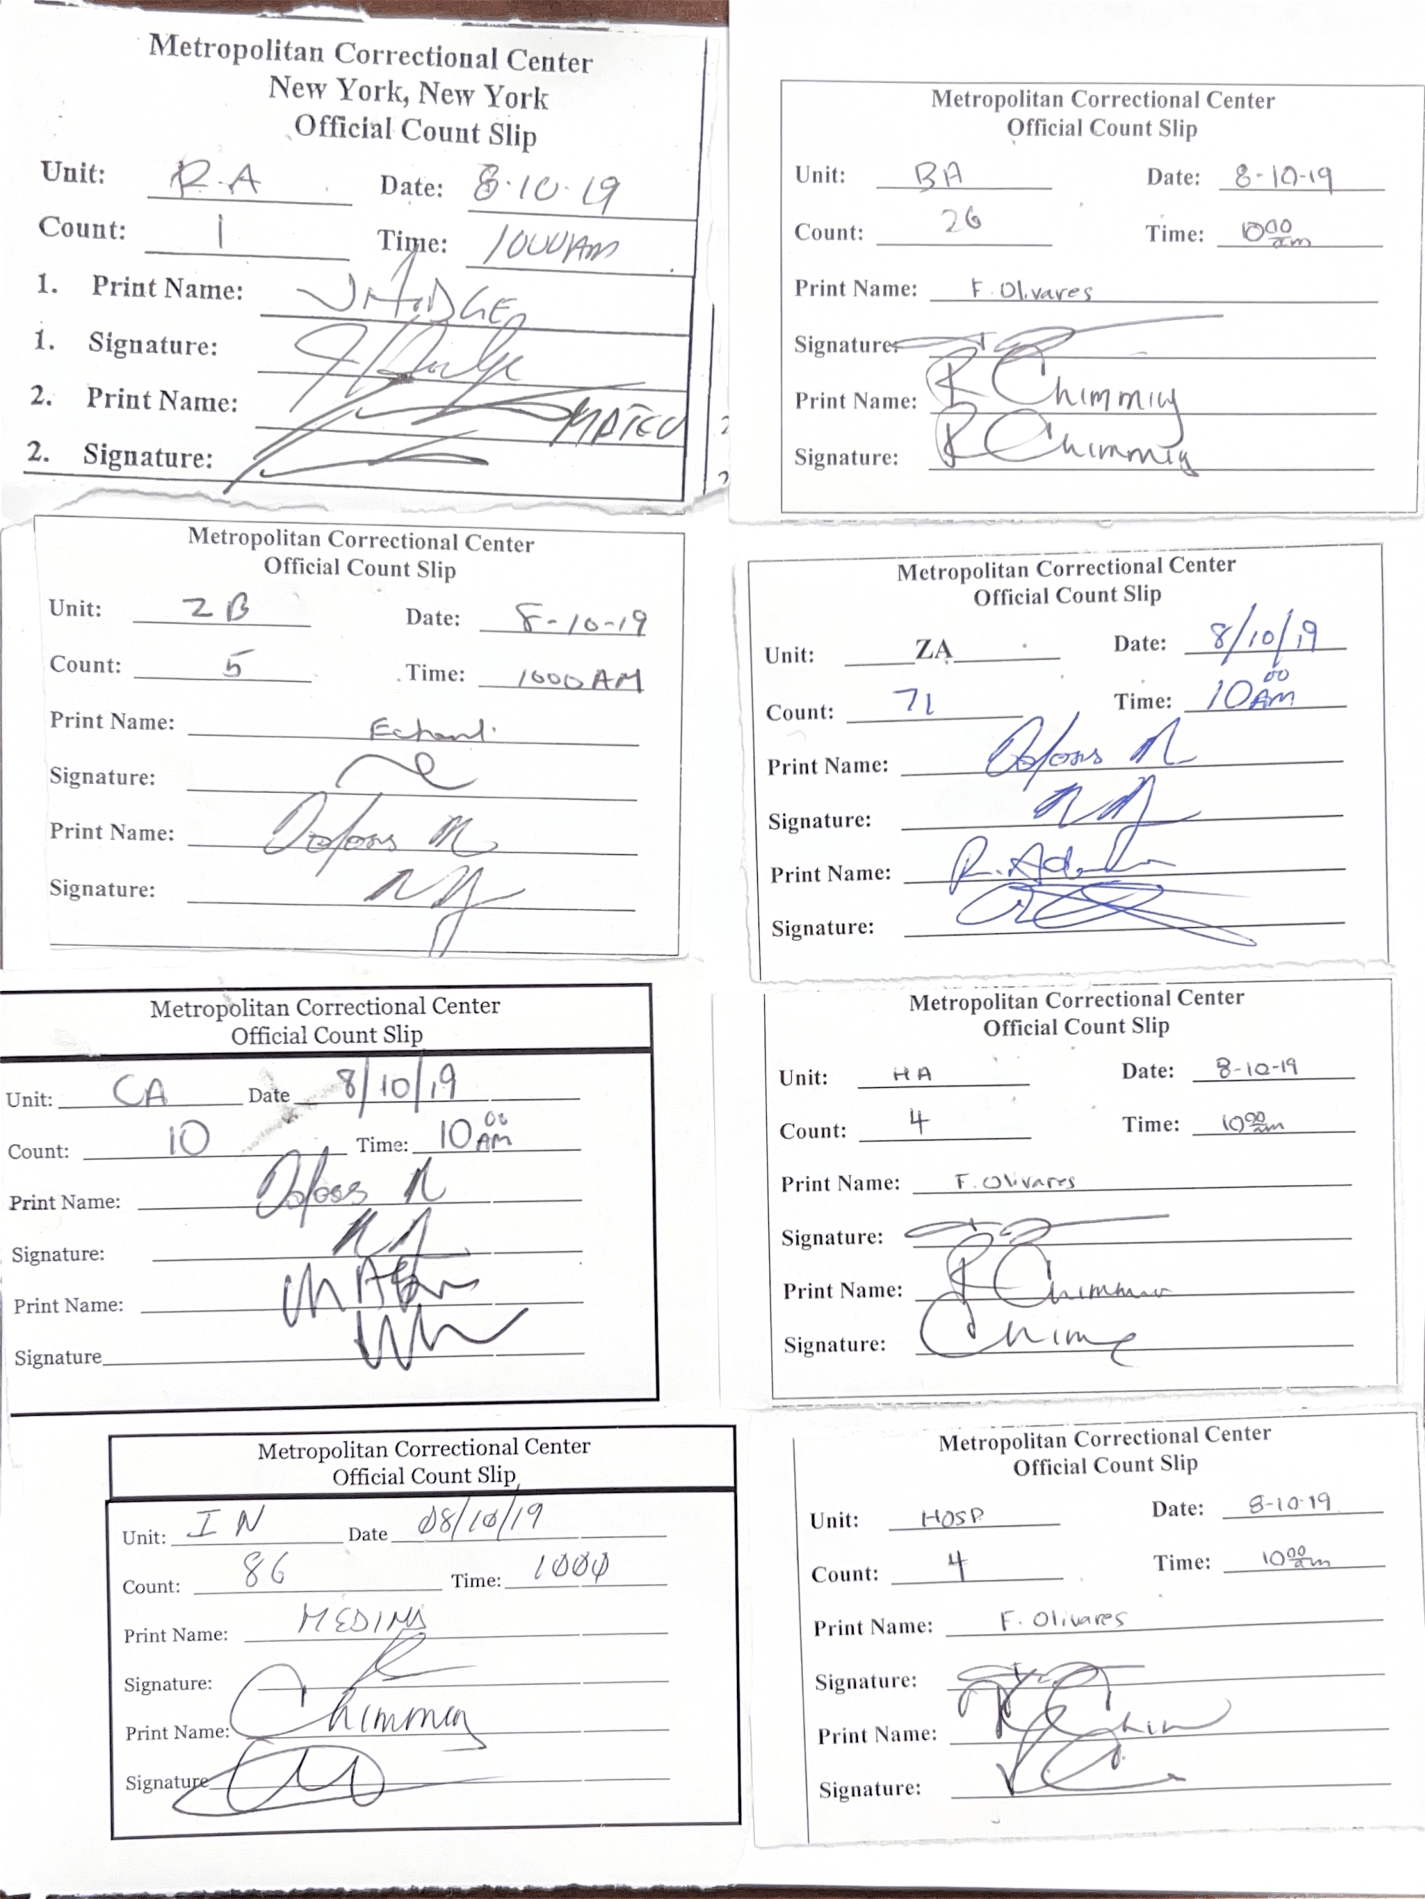 Metropolitan Correctional Center
New York, New York
Official Count Slip
Unit: R.A Date: 8.10.19
Count: 1 Time: 1000AM
1. Print Name: J HODGE
1. Signature:
2. Print Name: MATEO
2. Signature:
Metropolitan Correctional Center
Official Count Slip
Unit: BA Date: 8-10-19
Count: 26 Time: 10 00 am
Print Name: F. Olivares
Signature:
Print Name: R Chimmiy
Signature: R Chimmiy
Metropolitan Correctional Center
Official Count Slip
Unit: ZB Date: 8-10-19
Count: 5 Time: 1000 AM
Print Name:
Signature:
Print Name:
Signature:
Metropolitan Correctional Center
Official Count Slip
Unit: ZA Date: 8/10/19
Count: 71 Time: 10 00 AM
Print Name:
Signature:
Print Name:
Signature:
Metropolitan Correctional Center
Official Count Slip
Unit: CA Date 8/10/19
Count: 10 Time: 10 00 AM
Print Name:
Signature:
Print Name:
Signature
Metropolitan Correctional Center
Official Count Slip
Unit: HA Date: 8-10-19
Count: 4 Time: 10 00 am
Print Name: F. Olivares
Signature:
Print Name:
Signature:
Metropolitan Correctional Center
Official Count Slip
Unit: IN Date 08/10/19
Count: 86 Time: 1000
Print Name: MEDINA
Signature:
Print Name: Chimmey
Signature
Metropolitan Correctional Center
Official Count Slip
Unit: HOSP. Date: 8-10-19
Count: 4 Time: 10 00 am
Print Name: F. Olivares
Signature:
Print Name:
Signature: